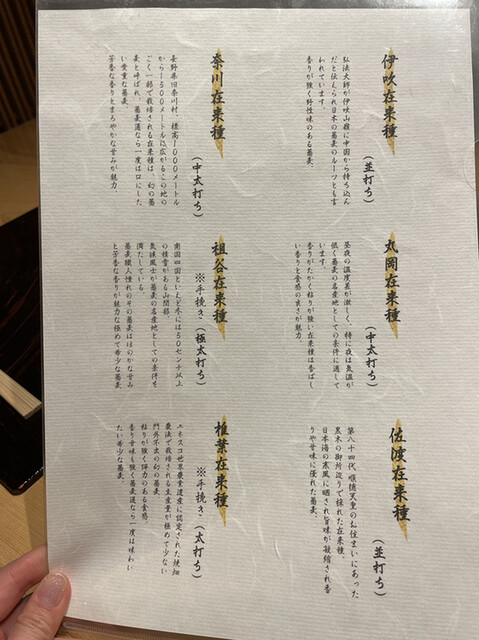 伊吹在来種
(並打ち)
弘法大師が伊吹山麓に中国から持ち込ん
だと伝えられ日本の蕎麦のルーツとも言
われています。
香りが強く野性味のある蕎麦。
丸岡在来種
(中太打ち)
昼夜の温度差が激しく、特に夜は気温が
低く蕎麦の名産地としての条件に適して
います。
香りがたかく粘りが強い在来種は香ばし
い香りと食感の良さが魅力。
佐渡在来種
(並打ち)
第八十四代 順徳天皇のお住まいにあった
黒木の御所辺りで採れた在来種。
日本海の寒風に晒され旨味が凝縮され香
りや甘味に優れた蕎麦。
奈川在来種
(中太打ち)
長野県旧奈川村、標高1000メートル
から1500メートルに広がるこの地の
ごく一部で栽培される在来種は、幻の蕎
麦と呼ばれ、蕎麦通なら一度は口にした
い貴重な蕎麦。
芳香な香りとまろやかな甘みが魅力。
祖谷在来種
※手挽き (極太打ち)
南国四国といえど冬には50センチ以上
の積雪がある山間部。
気候風土が蕎麦の名産地としての条件を
満たしている。
蕎麦職人憧れのその蕎麦はほのかな甘み
と芳香な香りが魅力な極めて希少な蕎麦
椎葉在来種
※手挽き (太打ち)
ユネスコ世界農業遺産に認定された焼畑
農法で栽培される生産量が極めて少ない
門外不出の幻の蕎麦。
粘りが強く弾力のある食感。
香り甘味も強く蕎麦通なら一度は味わい
たい希少な蕎麦。